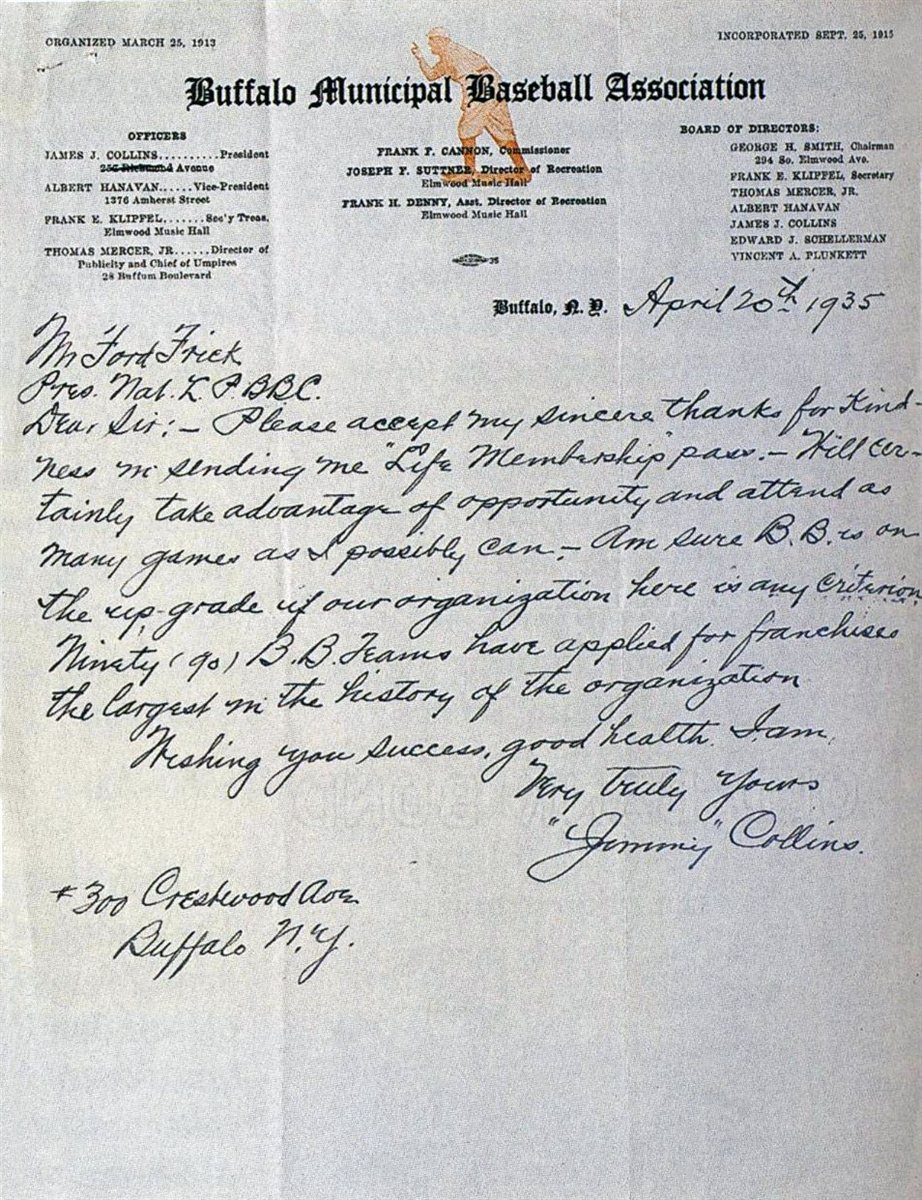 ORGANIZED MARCH 25, 1913
INCORPORATED SEPT. 25, 1915
Buffalo Municipal Baseball Association
OFFICERS
JAMES J. COLLINS..........President
256 Richmond Avenue
ALBERT HANAVAN.....Vice-President
1376 Amherst Street
FRANK E. KLIPFEL.......Sec'y Treas.
Elmwood Music Hall
THOMAS MERCER, JR......Director of
Publicity and Chief of Umpires
28 Buffum Boulevard
FRANK F. CANNON, Commissioner
JOSEPH F. SUTTNER, Director of Recreation
Elmwood Music Hall
FRANK H. DENNY, Asst. Director of Recreation
Elmwood Music Hall
35
BOARD OF DIRECTORS:
GEORGE H. SMITH, Chairman
294 So. Elmwood Ave.
FRANK E. KLIPFEL, Secretary
THOMAS MERCER, JR.
ALBERT HANAVAN
JAMES J. COLLINS
EDWARD J. SCHELLERMAN
VINCENT A. PLUNKETT
Buffalo, N. Y. April 20th 1935
Mr Ford Frick
Pres. Nat. L. P. B B C.
Dear Sir:- Please accept my sincere thanks for Kind-
ness in sending me "Life Membership" pass. - Will cer-
tainly take advantage of opportunity and attend as
many games as I possibly can. - Am sure B.B. is on
the up-grade if our organization here is any criterion
Ninety (90) B.B. Teams have applied for franchises
the largest in the history of the organization
Wishing you success, good health. I am,
Very truly Yours
"Jimmy" Collins.
#300 Crestwood Ave
Buffalo N.Y.